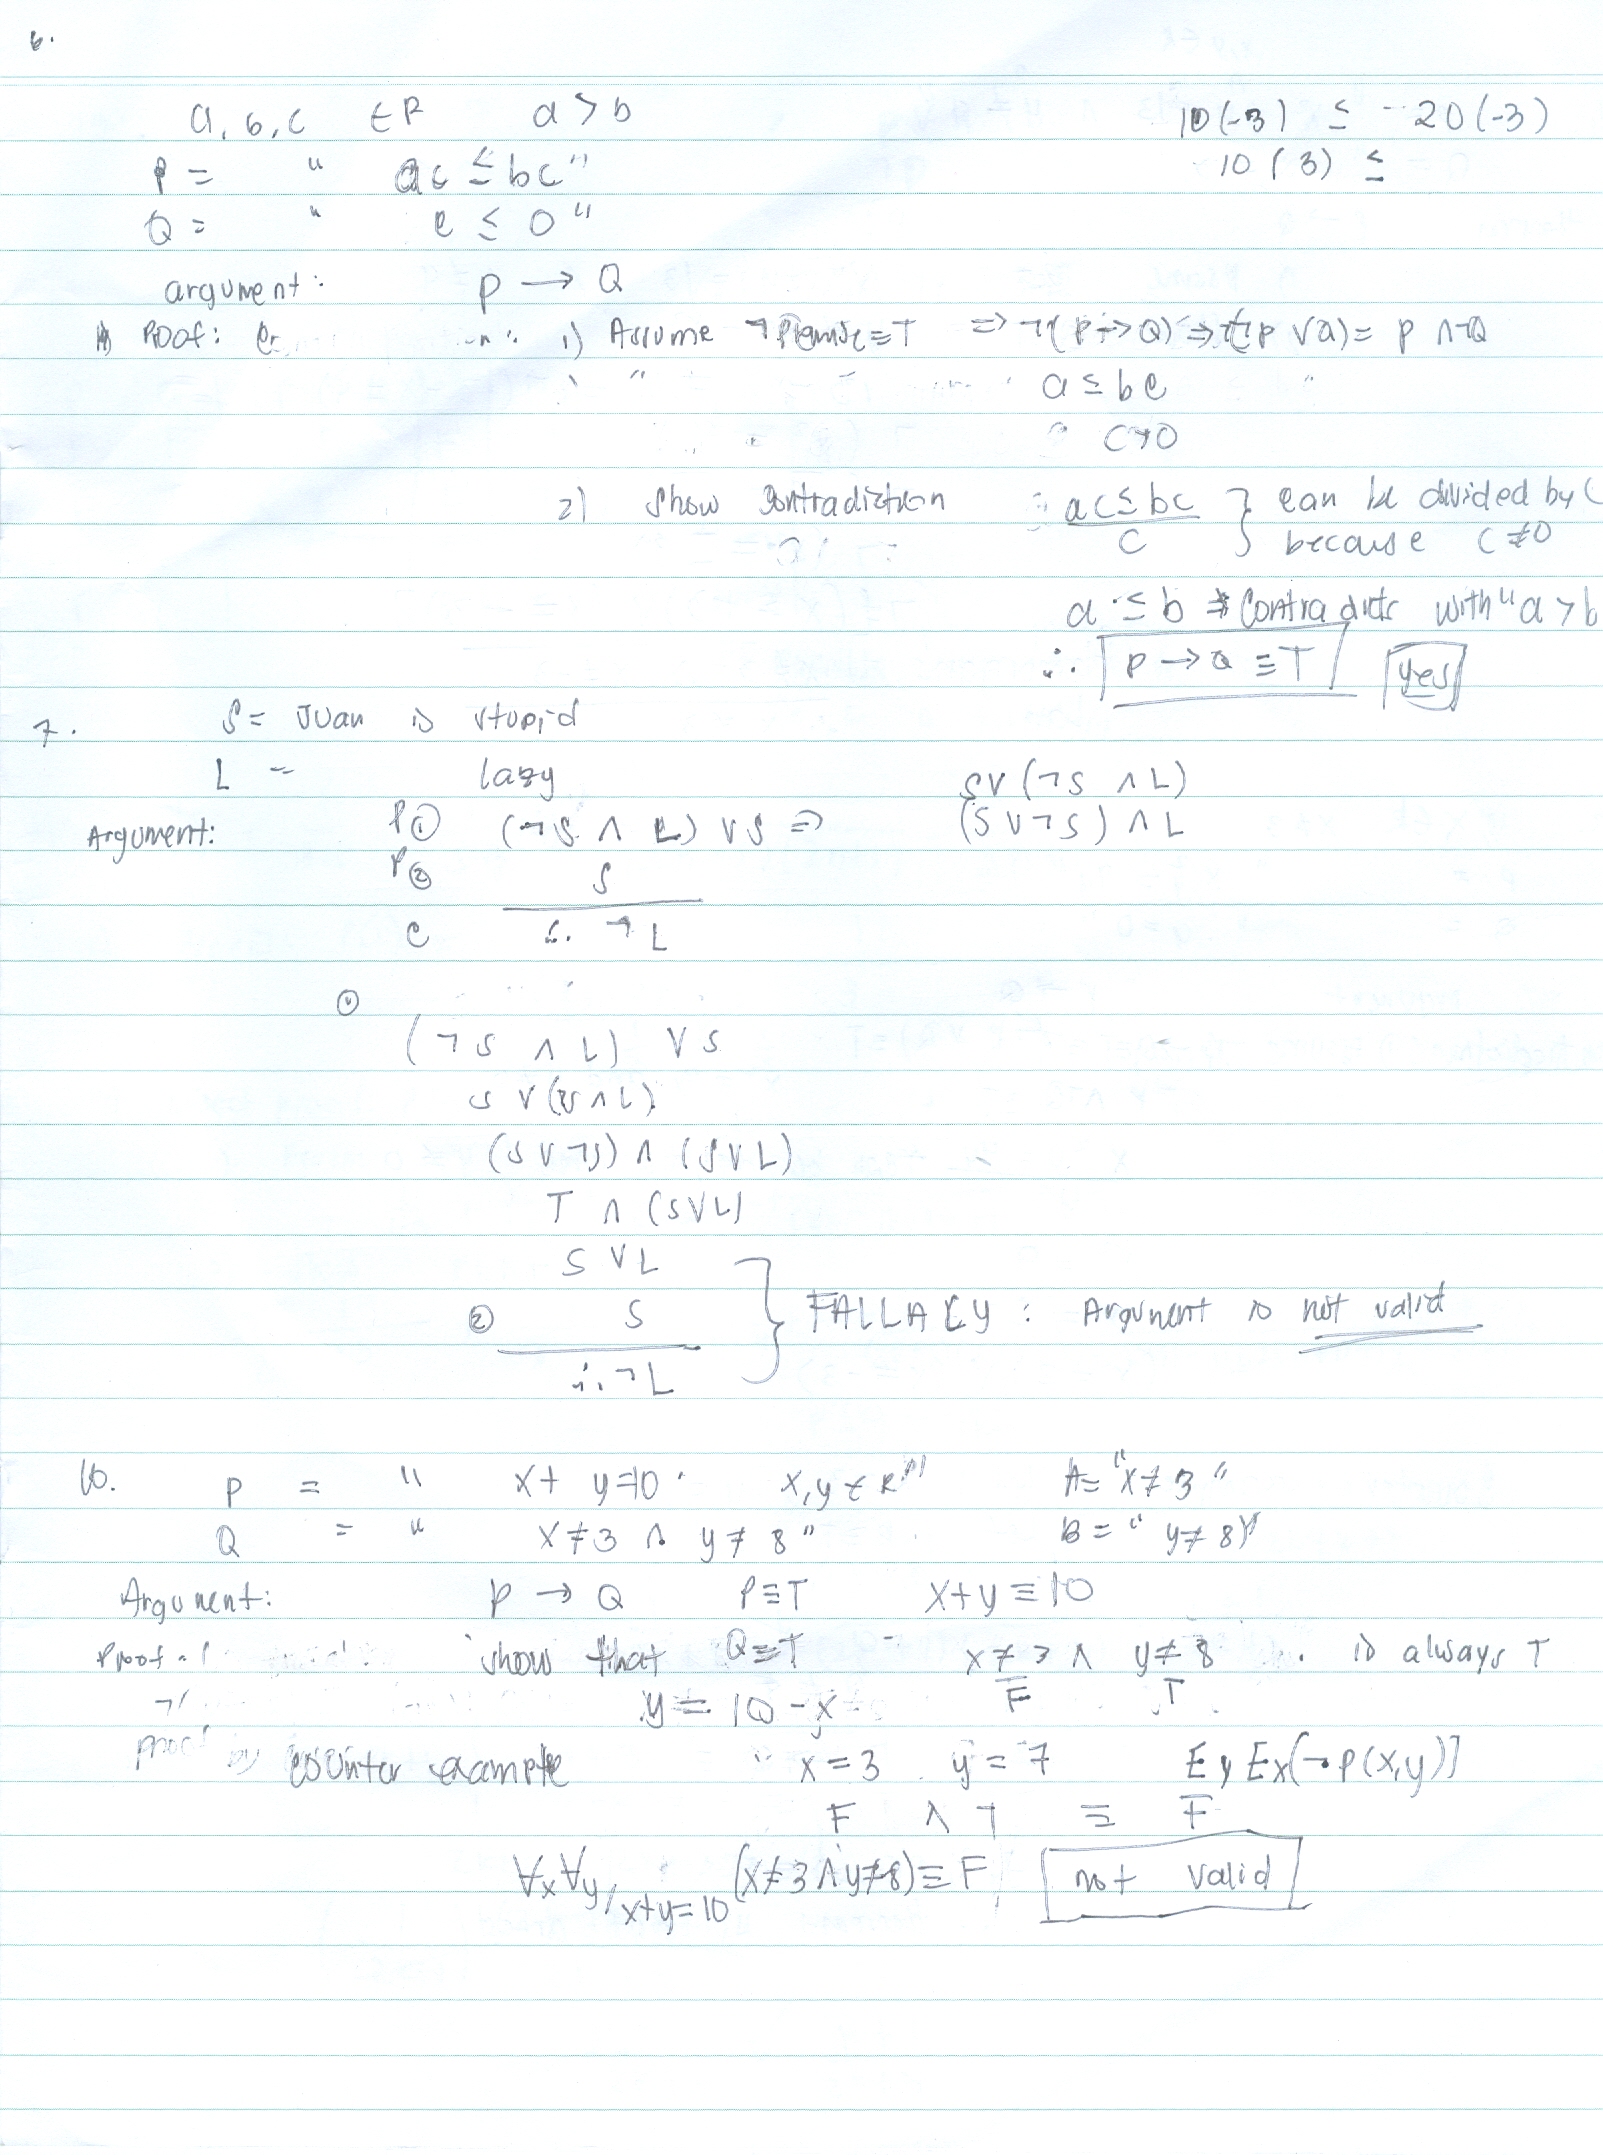 6.
a, b, c ∈ R a > b 10(-3) ≤ -20(-3)
P = " ac ≤ bc" 10(3) ≤
Q = " c ≤ 0"
argument: p → Q
Proof: 1) Assume ¬Premise ≡ T => ¬(P → Q) => ¬(¬p ∨ Q) = p ∧ ¬Q
a ≤ bc
c > 0
2) Show contradiction : ac ≤ bc } can be divided by C
c because c ≠ 0
a ≤ b * Contradicts with "a > b
∴ p → Q ≡ T yes
7. S = Juan is stupid
L = lazy S ∨ (¬S ∧ L)
Argument: P① (¬S ∧ L) ∨ S => (S ∨ ¬S) ∧ L
P② S
C ∴ ¬L
①
(¬S ∧ L) ∨ S
S ∨ (¬S ∧ L)
(S ∨ ¬S) ∧ (S ∨ L)
T ∧ (S ∨ L)
S ∨ L
② S } FALLACY : Argument is not valid
∴ ¬L
10. P = " x + y = 10 x, y ∈ R" A = "x ≠ 3"
Q = " x ≠ 3 ∧ y ≠ 8" B = "y ≠ 8"
Argument: p → Q P ≡ T x + y ≡ 10
Proof: show that Q ≡ T x ≠ 3 ∧ y ≠ 8 is always T
y = 10 - x F T
proof by counter example x = 3 y = 7 Ey Ex[¬P(x,y)]
F ∧ T ≡ F
∀x∀y, x+y=10 (x ≠ 3 ∧ y ≠ 8) ≡ F not valid